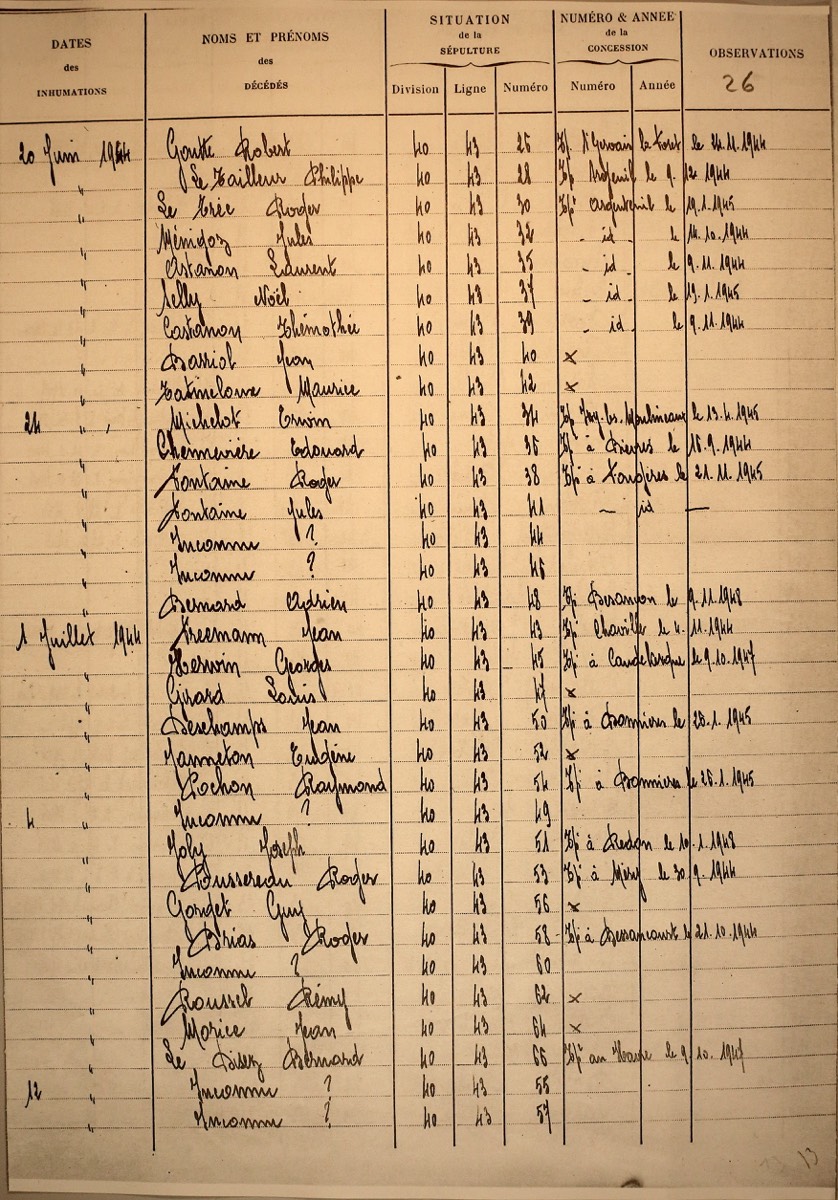 DATES des INHUMATIONS NOMS ET PRÉNOMS des DÉCÉDÉS SITUATION de la SÉPULTURE NUMÉRO & ANNÉE de la CONCESSION OBSERVATIONS
Division Ligne Numéro Numéro Année 26
20 Juin 1944 Robert 40 43 26 le 24.11.1944
" Le Tailleur Philippe 40 43 28 le 9. 12. 1944
" Le Roger 40 43 30 Tpt Argenteuil le 19.1.1945
" Jules 40 43 32 - id - le 14.10.1944
" Laurent 40 43 35 - id - le 9.11.1944
" Noël 40 43 37 - id - le 13.1.1945
" Castanon Thémothée 40 43 39 - id - le 9.11.1944
" Jean 40 43 40 x
" Maurice 40 43 42 x
24 " Michelot Erwin 40 43 34 Tpt Issy-les-Moulineaux le 13.4.1945
" Chennevière Edouard 40 43 36 Tpt à Bièvres le 16.9.1944
" Fontaine Roger 40 43 38 Tpt à Fougères le 21.11.1945
" Fontaine Jules 40 43 41 — id —
" Inconnu ? 40 43 44
" Inconnu ? 40 43 46
" Bernard Adrien 40 43 48 Tpt Besançon le 9.11.1948
1 Juillet 1944 Freemann Jean 40 43 43 Tpt Chaville le 4. 11.1944
" Georges 40 43 45 Tpt à le 9.10.1947
" Girard Louis 40 43 47 x
" Deschamps Jean 40 43 50 Tpt à Bonnières le 26.1.1945
" Janneton Eugène 40 43 52 x
" Rochon Raymond 40 43 54 Tpt à Bonnières le 26.1.1945
4 " Inconnu ? 40 43 49
" Joly Joseph 40 43 51 Tpt à Redon le 10.1.1948
" Roussereau Roger 40 43 53 Tpt à Méry le 30.9.1944
" Gorget Guy 40 43 56 x
" Brias Roger 40 43 58 Tpt à Bessancourt le 21.10.1944
" Inconnu ? 40 43 60
" Roussel Rémy 40 43 62 x
" Morice Jean 40 43 64 x
" Le Bernard 40 43 66 Tpt au Havre le 9. 10.
12 " Inconnu ? 40 43 55
" Inconnu ? 40 43 57
13